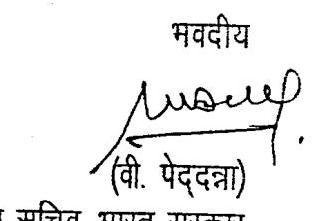 भवदीय
(वी. पेद्दन्ना)
सचिव, भारत सरकार